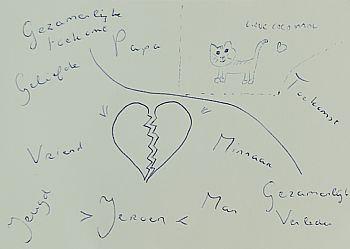 Gezamenlijke
toekomst
Papa
Geliefde
Toekomst
Vriend
Minnaar
Jeugd
> Jeroen <
Man
Gezamenlijk
Verleden